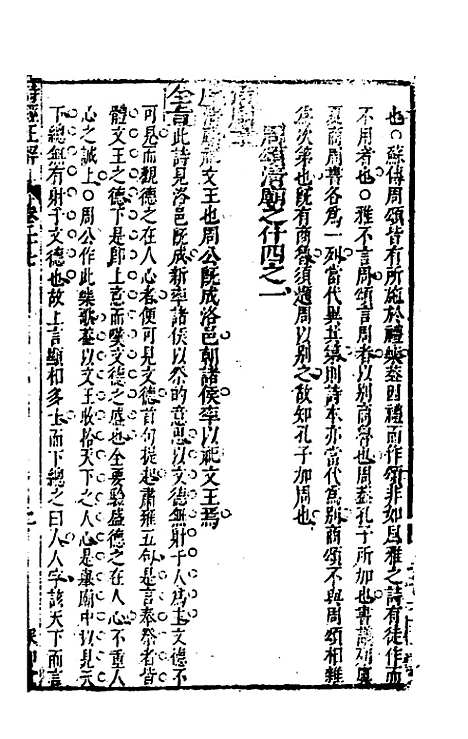 也○蘇傳周頌皆有所施於禮樂蓋因禮而作頌非如風雅之詩有徒作而
不用者也○雅不言周頌言周者以別商魯也周蓋孔子所加也書議列虞
夏商周書各為一列當代異其第則詩本亦當代為別商頌不與周頌相雜
為次第也既有商魯須題周以別之故知孔子加周也
周頌清廟之什四之一
清廟祀文王也周公既成洛邑朝諸侯率以祀文王焉
全旨此詩見洛邑既成新率諸侯以祭的意思以文德無射于人為主文德不
可見而觀德之在人心者便可見文德首句提起肅雝五句是言奉祭者皆
體文王之德下是即上意而嘆文德之盛也全要騐盛德之在人心不重人
心之誠上○周公作此樂歌蓋以文王收拾天下之人心是舉廟中以見天
下總無有射于文德也故上言顯相多士而下總之曰人人字該天下而言